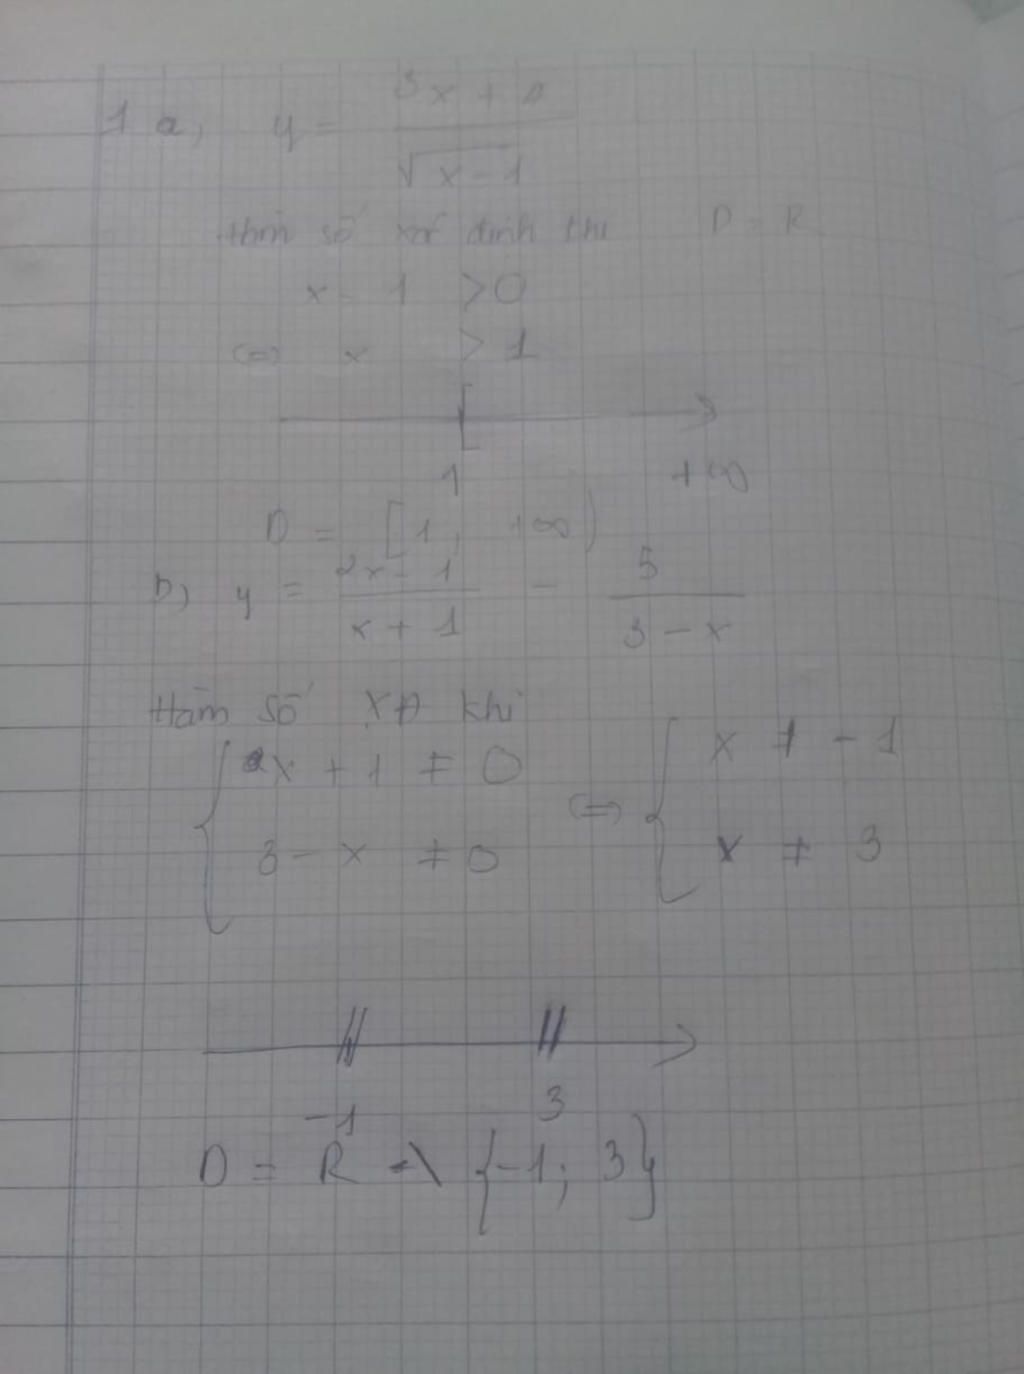 1 a, y = 3x + 1 / √x-1
Hàm số xác định khi D = R
x - 1 > 0
<=> x > 1
1 +∞
D = [1, +∞)
b) y = 2x-1 / x+1 - 5 / 3-x
Hàm số XĐ khi
{ x + 1 ≠ 0 <=> { x ≠ -1
3 - x ≠ 0 x ≠ 3
-1 3
D = R \ {-1; 3}